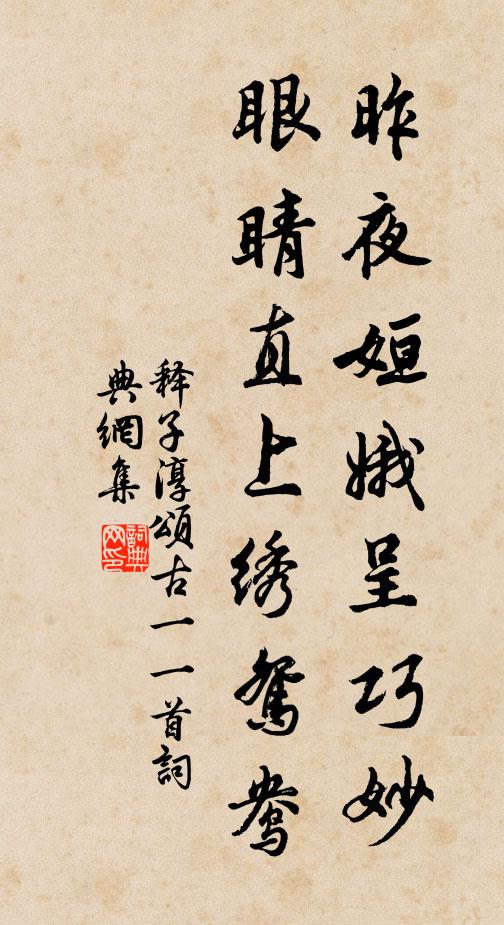 昨夜姮娥呈巧妙
眼睛直上绣鸳鸯
释子淳頌古一一首詞
典網集
詞典
网印